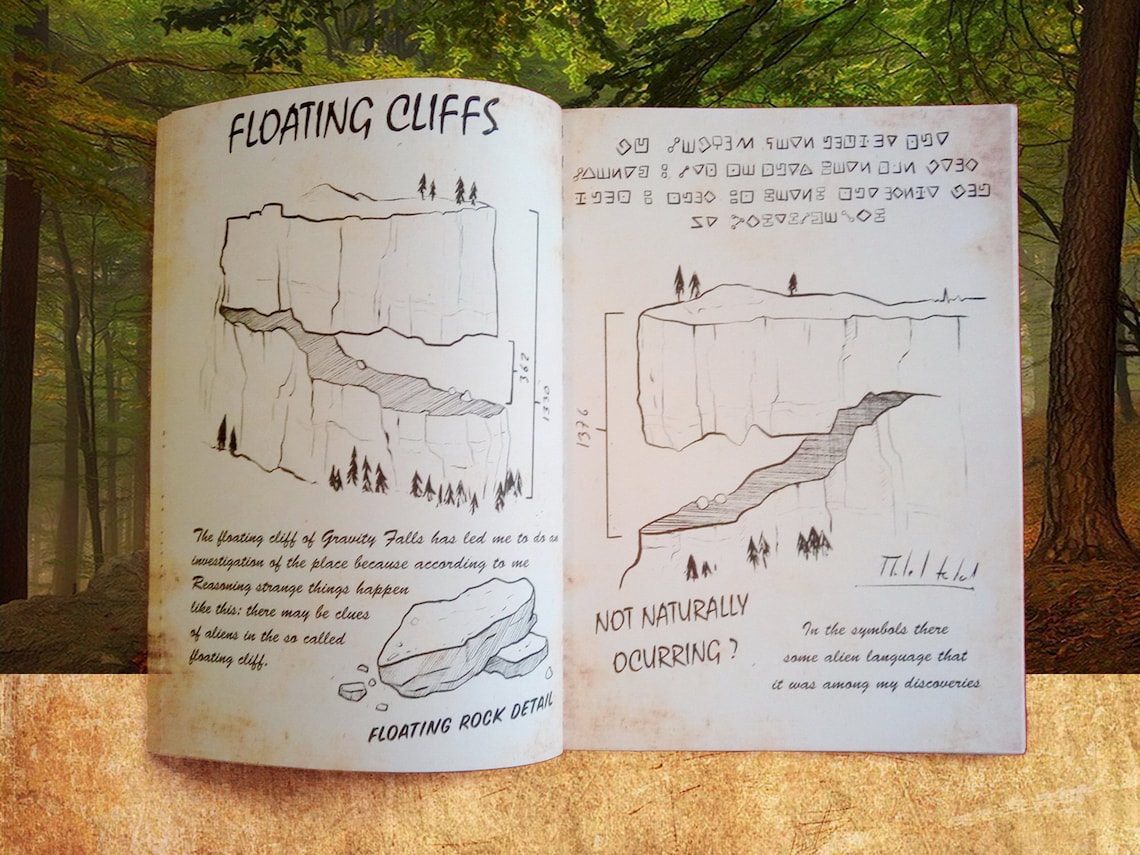 FLOATING CLIFFS
362
1330
The floating cliff of Gravity Falls has led me to do an
investigation of the place because according to me
Reasoning strange things happen
like this: there may be clues
of aliens in the so called
floating cliff.
FLOATING ROCK DETAIL
1376
NOT NATURALLY
OCURRING ?
In the symbols there
some alien language that
it was among my discoveries